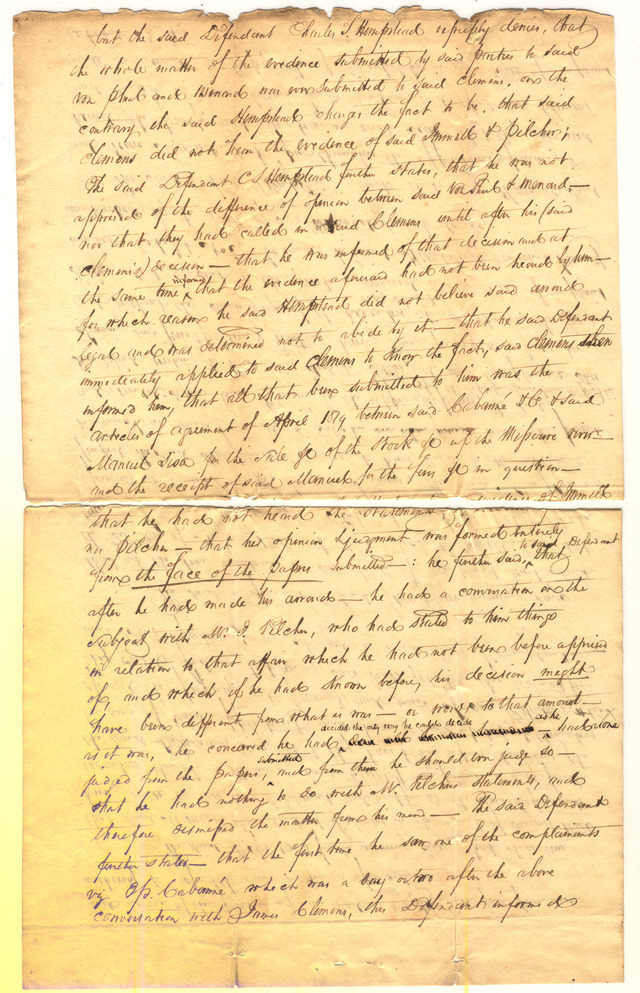 but the said Defendant Charles S. Hempstead expressly denies, that
the whole matter of the evidence submitted by said parties to said
von Phul and Menard was ever submitted to said Clemens, on the
contrary the said Hempstead charges the fact to be, that said
Clemens did not hear the evidence of said Immell & Pilcher;
The said Defendant C S Hempstead further states, that he was not
apprised of the difference of opinion between said von Phul & Menard—
nor that they had called in said Clemens until after his (said
Clemens's) decision— that he was informed of that decision and at
the same time informed that the evidence aforesaid had not been heard by him—
for which reason he said Hempstead did not believe said award
legal and was determined not to abide by it— that he said Defendant
immediately applied to said Clemens to know the fact, said Clemens then
informed him, that all that been submitted to him was the
articles of agreement of April 1819 between said Cabanné & Co & said
Manuel Lisa for the sale &c of the stock &c of the Missouri
and the receipt of said Manuel for the furs &c in question—
that he had not heard the statements of Immell
nor Pilcher— that his opinion & judgment was formed entirely
from the face of the papers submitted—: he further said, to said Defendant that
after he had made his award— he had a conversation on the
subject with Mr. J. Pilcher, who had stated to him things
in relation to that affair which he had not been before apprised
of, and which if he had known before, his decision might
have been different from what is was— or words to that amount—
as it was, he conceived he had decided the only way he could decide as he had alone
judged from the papers submitted, and from them he should own judge so—
that he had nothing to do with Mr. Pilchers statements, and
therefore dismissed the matter from his mind— The said Defendant
further states— that the first time he saw one of the complainants
viz Cabanné which was a day or two after the above
conversation with James Clemens, this Defendant informed